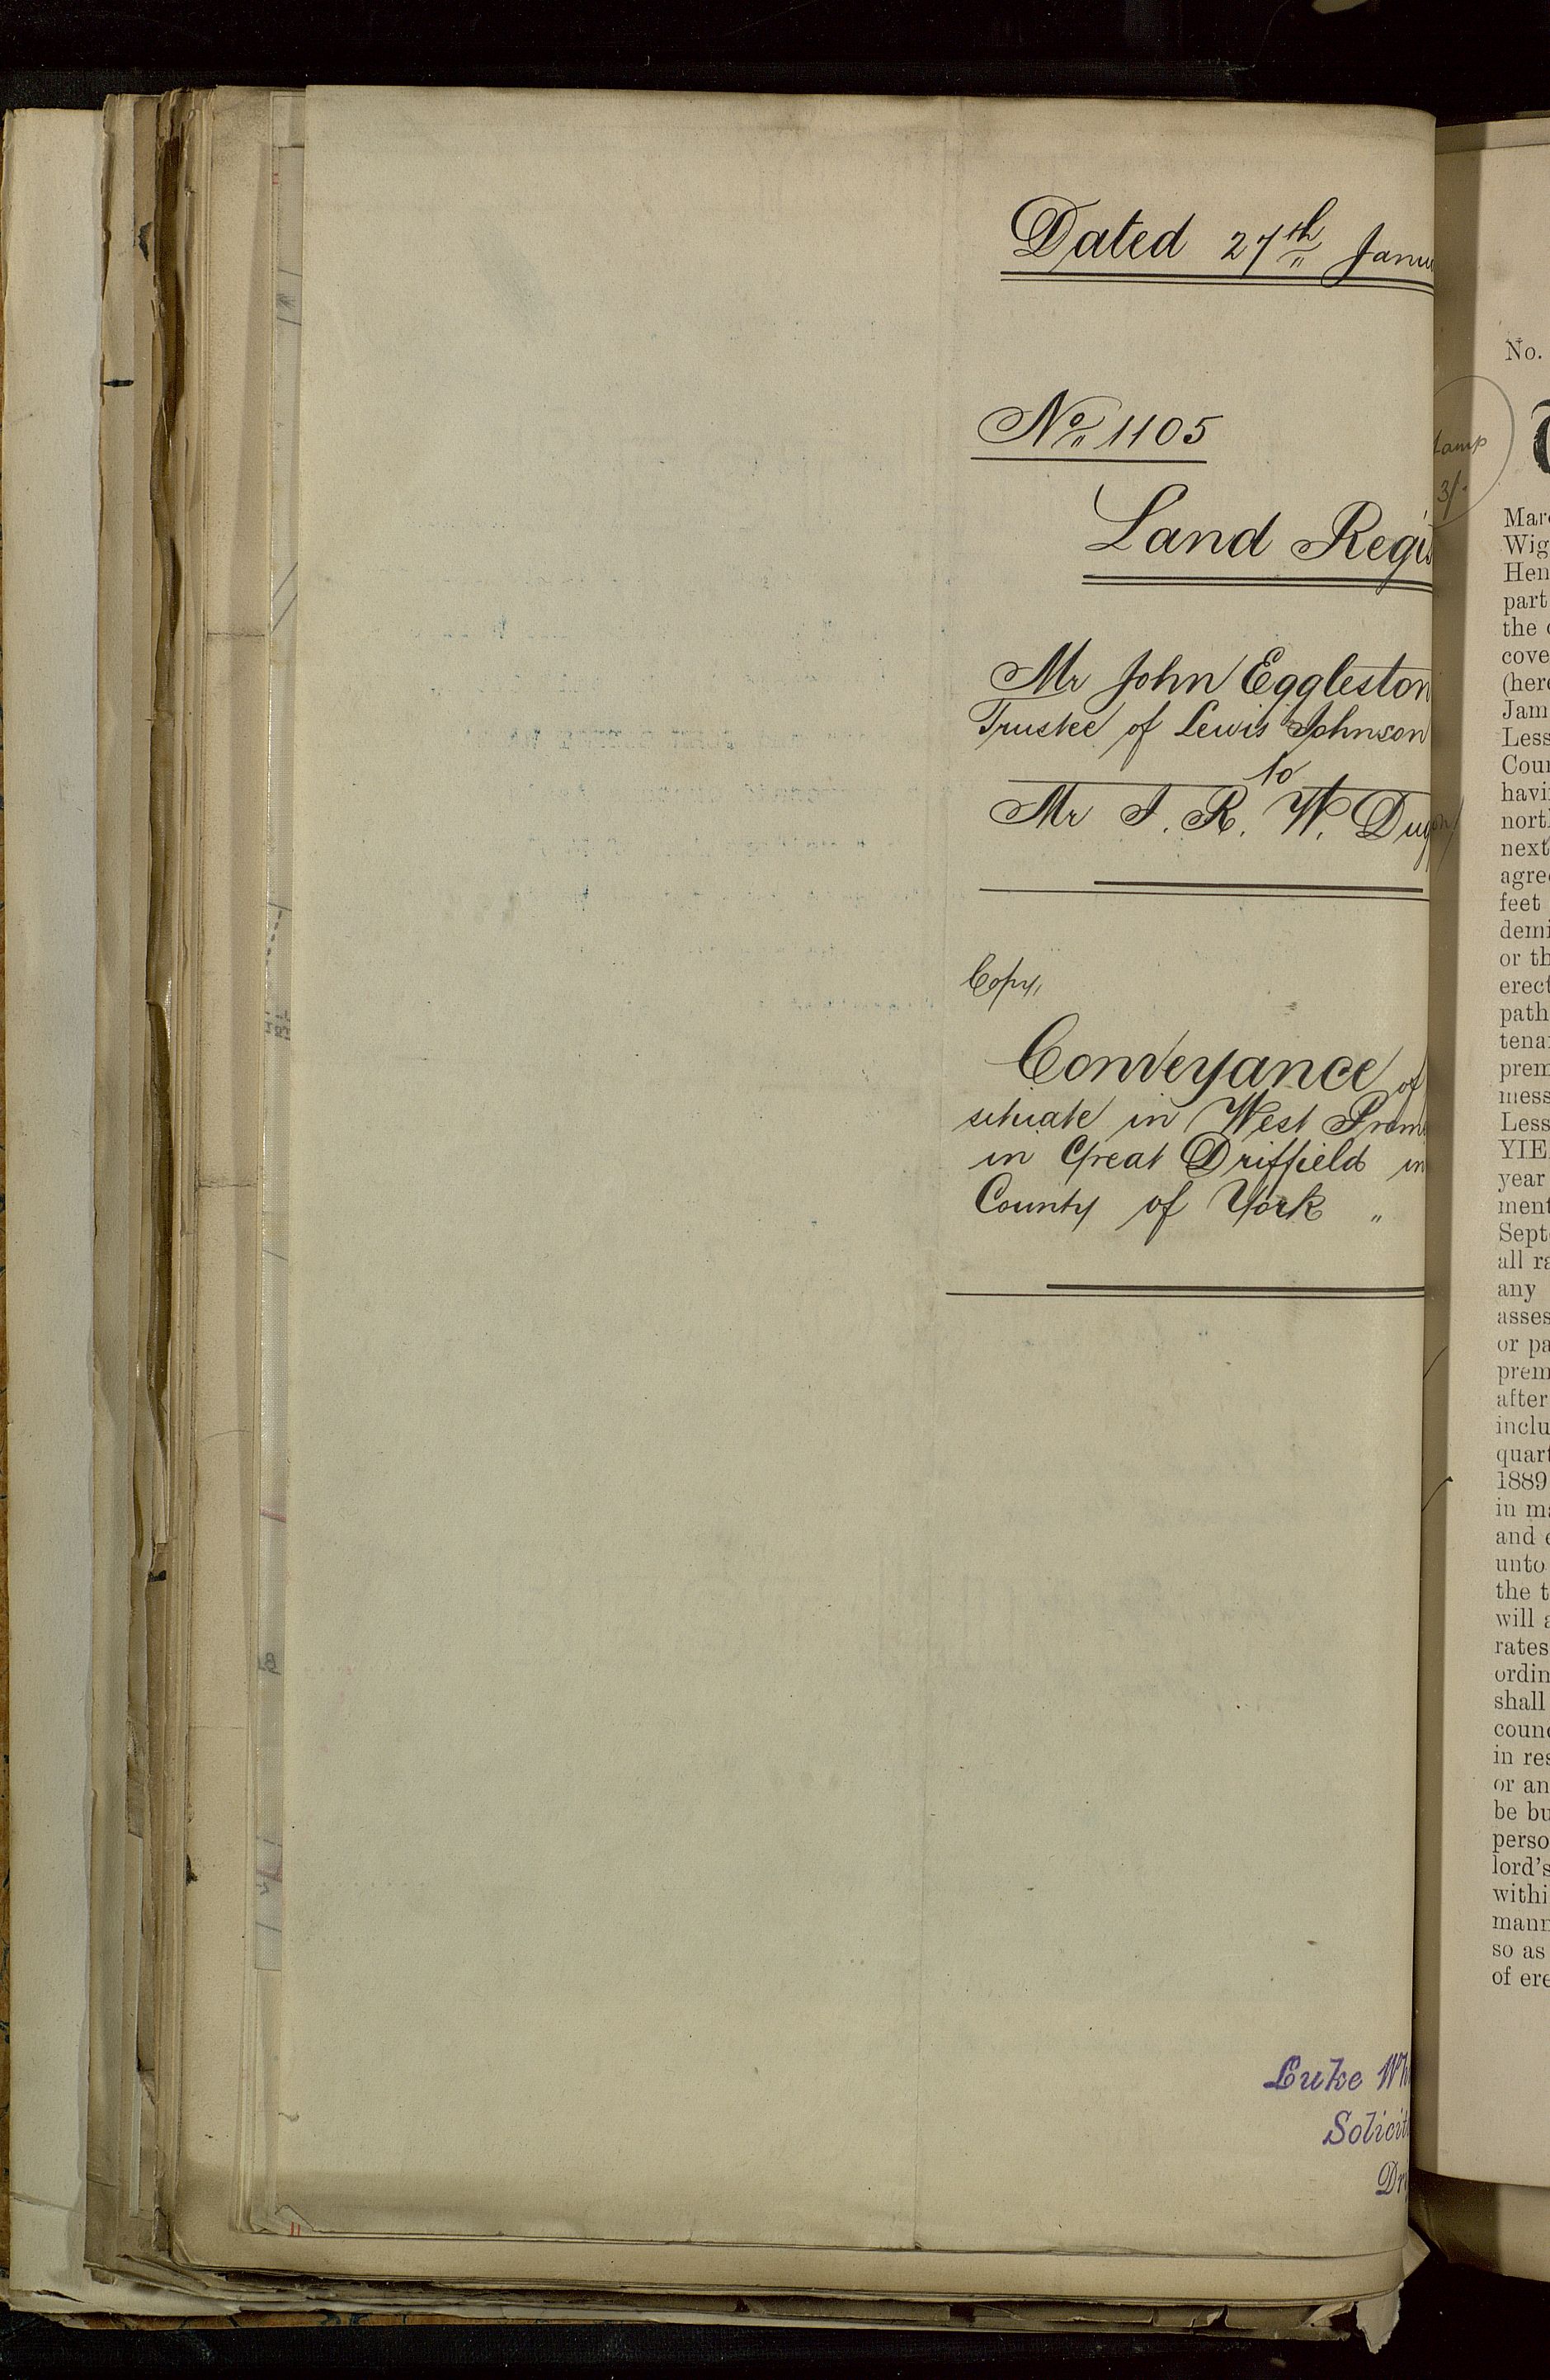 Dated 27th Janu
No 1105
Land Regis
Mr John Eggleston
Trustee of Lewis Johnson
to
Mr T. R. W. Dug
Copy,
Conveyance of
situate in West Prom
in Great Driffield in
County of York "
Luke Wh
Solicit
Dri
No.
tamp
3/-
Marc
Wig
Hen
part
the
cove
(here
Jam
Less
Coun
havi
nort
next
agree
feet
demi
or th
erect
path
tena
prem
mess
Less
YIE
year
ment
Sept
all ra
any
asses
or pa
prem
after
inclu
quart
1889
in ma
and e
unto
the t
will a
rates
ordin
shall
counc
in res
or an
be bu
perso
lord's
withi
mann
so as
of ere